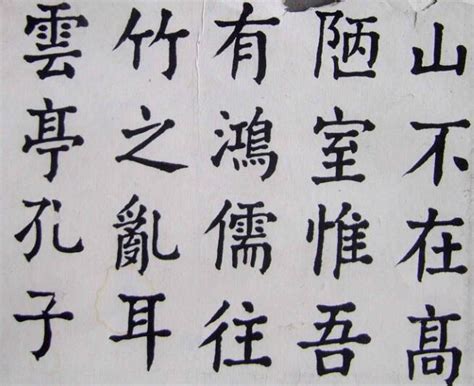 山不在高
陋室惟吾
有鴻儒往
竹之亂耳
雲亭孔子